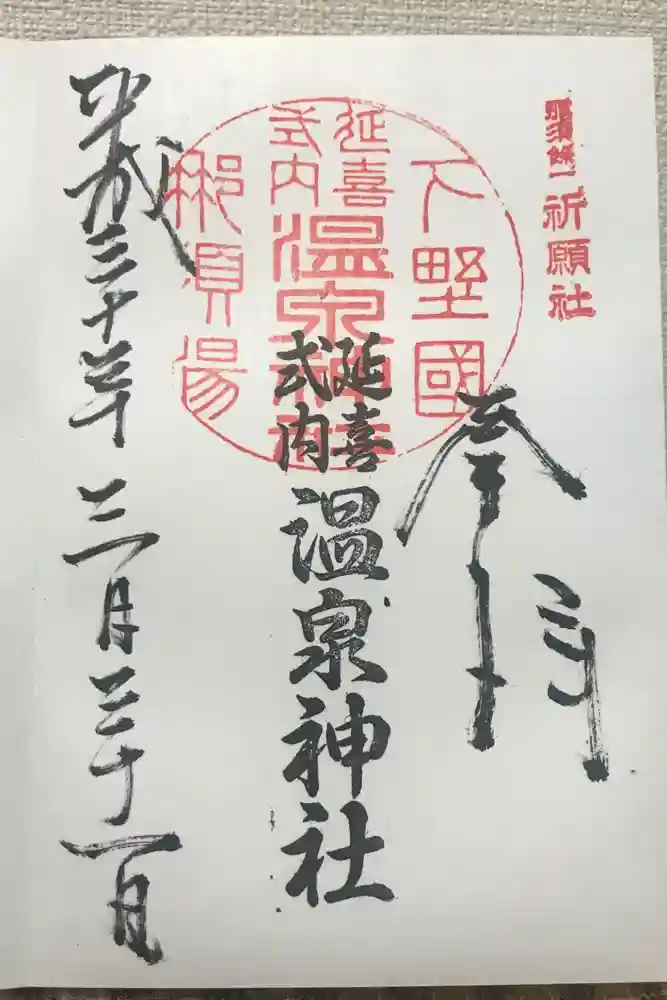 那須餘一祈願社
奉拝
下野國
延喜
式内
温泉神社
那須湯
延喜
式内
温泉神社
平成三十年三月三十一日